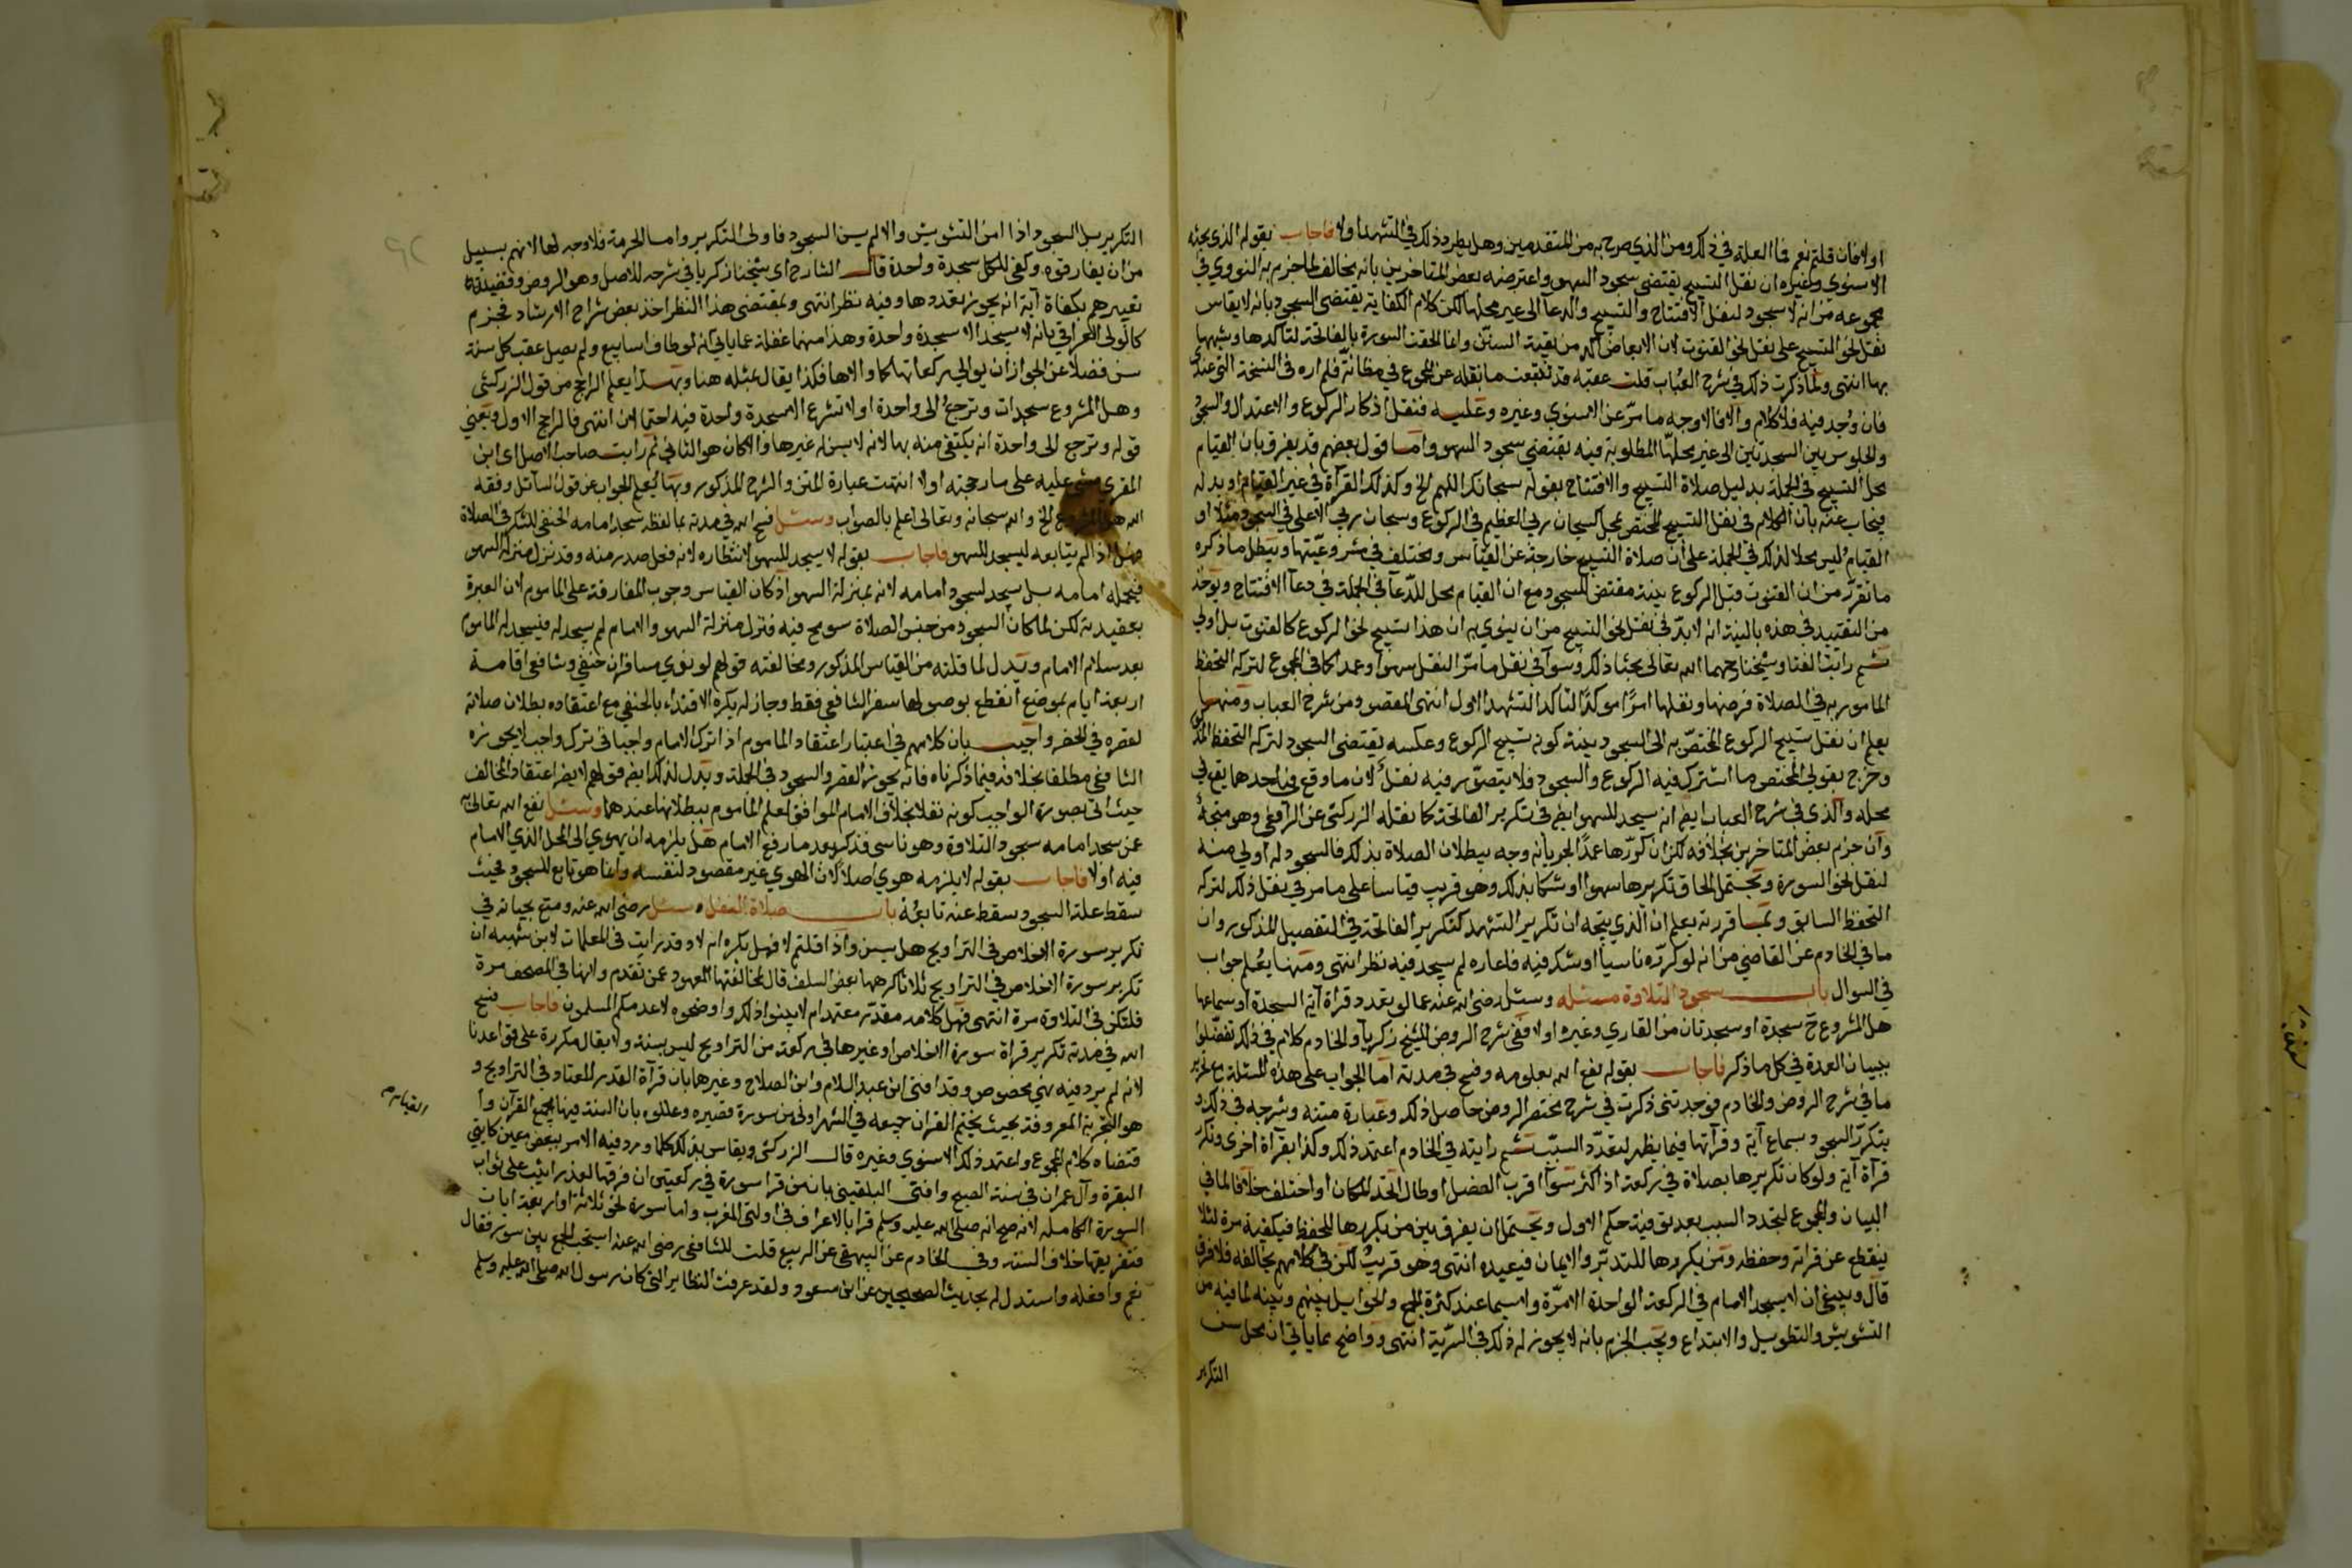 اولا فان قلتم نعم فما العلة في ذلك ومن الذي صرح به من المتقدمين وهل يطرد ذلك في التشهد اولا فاجاب بقوله الذي بحثه
الاسنوي وغيره ان نقل التسبيح يقتضي سجود السهو واعترضه بعض المتاخرين بانه مخالف لما جزم به النووي في
مجموعه من انه لا سجود لنقل الافتتاح والتسبيح والدعا الى غير محلها لكن كلام الكفاية يقتضي السجود بانه لا يقاس
نقل نحو التسبيح على نقل نحو القنوت لان الابعاض اكد من بقية السنن وانما الحقت السورة بالفاتحة لتاكدها وشبهها
بها انتهى ولما ذكرت ذلك في شرح العباب قلت عقبه قد تتبعت ما نقله عن المجموع في مظانه فلم اره في النسخة التي عندي
فان وجد فيه فلا كلام والا فالاوجه ما مر عن الاسنوي وغيره وعليه فنقل اذكار الركوع والاعتدال والسجود
والجلوس بين السجدتين الى غير محلها المطلوبة فيه يقتضي سجود السهو واما قول بعضهم قد يفرق بان القيام
محل التسبيح في الجملة بدليل صلاة التسبيح والافتتاح بقوله سبحانك اللهم الخ وكذلك القرآة في غير القيام او بدله
فيجاب عنه بان الكلام في نقل التسبيح المختص بمحل كسبحان ربي العظيم في الركوع وسبحان ربي الاعلى في السجود مثلا او
القيام ليس محلا لذلك في الجملة على ان صلاة التسبيح خارجة عن القياس ومختلف في مشروعيتها ويبطل ما ذكره
ما تقرر من ان القنوت قبل الركوع بنية مقتض للسجود مع ان القيام محل للدعآ في الجملة في دعآ الافتتاح ويؤخذ
من التقييد في هذه بالنية انه لا بد في نقل نحو التسبيح من ان ينوي به ان هذا تسبيح نحو الركوع كالقنوت بل اولى
ثم رايت الفتا وشيخنا رحمهما الله تعالى بحثا ذلك وسوآ في نقل ما مر النقل سهوا وعمدا كما في المجموع لتركه التحفظ
المامور به في الصلاة فرضها ونفلها امرا موكدا لتاكد التشهد الاول انتهى المقصود من شرح العباب ومنه
يعلم ان نقل تسبيح الركوع المختص به الى السجود بنية كونه تسبيح الركوع وعكسه يقتضى السجود لتركه التحفظ
وخرج بقولي المختص ما اشترك فيه الركوع والسجود فلا يتصور فيه نقل لان ما وقع في احدهما يقع في
محله والذي في شرح العباب ايضا انه يسجد للسهو ايضا في تكرير الفاتحة كما نقله الزركشي عن الرافعي وهو متجه
وان جزم بعض المتاخرين بخلافه لكن ان كررها عمدا لجريان وجه ببطلان الصلاة بذلك فالسجود له اولى منه
لنقل نحو السورة ويحتمل الحاق تكريرها سهوا او شكا بذلك وهو قريب قياسا على ما مر في نقل ذلك لتركه
التحفظ السابق وبما قررته يعلم ان الذي يتجه ان تكرير التشهد كتكرير الفاتحة في التفصيل المذكور وان
ما في الخادم عن القاضي من انه لو كرره ناسيا او شك فيه فاعاده لم يسجد فيه نظر انتهى ومنها يعلم جواب
في السوال باب سجود التلاوة مسئله وسئل رضي الله عنه عما لو تعدد قرآة اية السجدة او سماعها
هل المشروع ح سجدة او سجدتان من القاري وغيره اولا ففي شرح الروض للشيخ زكريآ والخادم كلام في ذلك تفضلوا
ببيان العدة في كل ما ذكر فاجاب بقوله نفع الله بعلومه وفسح في مدته اما الجواب على هذه المسئلة مع تحرير
ما في شرح الروض والخادم فوجدتني ذكرت في شرح مختصر الروض حاصل ذلك وعبارة متنه وشرحه في ذلك و
يتكرر السجود بسماع آية وقرآتها فيما يظهر لتعدد السبب ثم رايته في الخادم اعتمد ذلك وكذا بقرآة اخرى وتكرر
قرآة آية ولو كان تكريرها بصلاة في ركعة اذ اكثر سوآ اقرب الفصل او طال اتحد المكان او اختلف خلافا لما في
البيان والمجموع لتجدد السبب بعد توفية حكم الاول ويحتمل ان يفرق بين من يكررها للحفظ فيكفيه مرة لئلا
ينقطع عن قرآته وحفظه ومن يكررها للتدبر والايمان فيعيده انتهى وهو قريب لكن في كلامهم يخالفه فلا فرق
قال وينبغي ان لا يسجد الامام في الركعة الواحدة الا مرة ولا سيما عند كثرة الجمع والحوايل بينهم وبينه لما فيه من
التشويش والتطويل والابتداع ويجب الجزم بانه لا يجوز له ذلك في السرية انتهى وواضح مما ياتي ان محل سن
التكرير
التكرير بل السجود اذا امن التشويش والا لم يسن السجود فاولى التكرير واما الحرمة فلا وجه لها لانهم بسبيل
من ان يفارقوه وكفى للكل سجدة واحدة قال الشارح اي شيخنا زكريا في شرحه للاصل وهو الروض وقضية
تعبيرهم بكفاة آية انه يجوز تعددها وفيه نظر انتهى وبمقتضى هذا النظر اخذ بعض شراح الارشاد فجزم
كالولي العراقي بانه لا يسجد الا سجدة واحدة وهذا منهما غفلة عما ياتي انه لو طاف اسابيع ولم يصل عقب كل سنة
سن فضلا عن الجواز ان يوالي ركعاتها كما والاها فكذا يقال بمثله هنا وبهذا يعلم الراجح من قول الزركشي
وهل المشروع سجدات وترجع الى واحدة او لا تشرع الا سجدة واحدة فيه احتمالان انتهى فالراجح الاول ويعني
قوله وترجع الى واحدة انه يكتفى منه بها لانه لا يسن له غيرها والا كان هو الثاني ثم رايت صاحب الاصل اي ابن
المقري مشى عليه على ما رجحته اولا انتهت عبارة المتن والشرح المذكور وبها يعلم الجواب عن قول السآئل وفقه
الله هل المشروع الخ والله سبحانه وتعالى اعلم بالصواب وسئل فسح الله في مدته بما لفظه سجد امامه الحنفي للشكر في الصلاة
فهل اذا لم يتابعه ليسجد للسهو فاجاب بقوله لا يسجد للسهو لانتظاره لانه فعل صدر منه وقد نزل منزلة السهو
فيحمله امامه بل يسجد لسجود امامه لانه بمنزلة السهو اذ كان القياس وجوب المفارقة على الماموم لان العبرة
بعقيدته لكن لما كان السجود من جنس الصلاة سومح فيه فنزل منزلة السهو والامام لم يسجد له فيسجد له الماموم
بعد سلام الامام ويدل لما قلته من القياس المذكور ومخالفته قولهم لو نوى مسافران حنفي وشافعي اقامة
اربعة ايام بموضع انقطع بوصولها سفر الشافعي فقط وجاز له بكره الاقتداء بالحنفي مع اعتقاده بطلان صلاته
لقصره في الحضر واجيب بان كلامهم في اعتبار اعتقاد الماموم اذا ترك الامام واجبا في ترك واجب لا يجوزه
الشافعي مطلقا بخلافه فيما ذكرناه فانه يجوز القصر والسجود في الجملة ويدل لذلك ايضا قولهم لا يضر اعتقاد المخالف
حيث اتى بصورة الواجب كونه نفلا بخلاف الامام الموافق لعلم الماموم ببطلانها عندهما وسئل نفع الله تعالى به
عن سجد امامه سجود التلاوة وهو ناسي فذكر بعد ما رفع الامام هل يلزمه ان يهوي الى المحل الذي الامام
فيه اولا فاجاب بقوله لا يلزمه هوي اصلا لان الهوي غير مقصود لنفسه وانما هو تابع للسجود فحيث
سقط علة السجود سقط عنه تابعه باب صلاة النفل وسئل رضي الله عنه ومتع بحياته في
تكرير سورة الاخلاص في التراويح هل يسن واذا قلتم لا فهل يكره ام لا وقد رايت في المعلمات لابن شهبه ان
تكرير سورة الاخلاص في التراويح ثلاثا كرهها بعض السلف قال لمخالفتها المعهود عمن تقدم ولانها في المصحف مرة
فلتكن في التلاوة مرة انتهى فهل كلامه مقدر معتمد ام لا بينوا ذلك واوضحوه لا عدمكم المسلمون فاجاب فسح
الله في مدته تكرير قرآة سورة الاخلاص او غيرها في ركعة من التراويح ليس بسنة ولا يقال مكررة على قواعدنا
لانه لم يرد فيه نهي مخصوص وقد افتى ابن عبد السلام وابن الصلاح وغيرهما بان قرآة القدر المعتاد في التراويح و
هو التجزية المعروفة بحيث يختم القران جميعه في الشهر اولى من سورة قصيره وعللوه بان السنة فيها جميع القرآن وا
القيام
قتضاه كلام المجموع واعتمد ذلك الاسنوي وغيره قال الزركشي ويقاس بذلك كلما ورد فيه الامر ببعض معين كايتي
البقرة وآل عمران في سنة الصبح وافتى البلقيني بان من قرا سورة في ركعتين ان فرقها لعذر اثيب على ثواب
السورة الكاملة لانه صح انه صلى الله عليه وسلم قرا بالاعراف في اولتي المغرب واما سورة نحو ثلاثة او اربعة ايات
فتفريقها خلاف السنة وفي الخادم عن البيهقي عن الربيع قلت للشافعي رضي الله عنه استحب الجمع بين سور فقال
نعم وافعله واستدل له بحديث الصحيحين عن ابن مسعود ولقد عرفت النظاير التي كان رسول الله صلى الله عليه وسلم